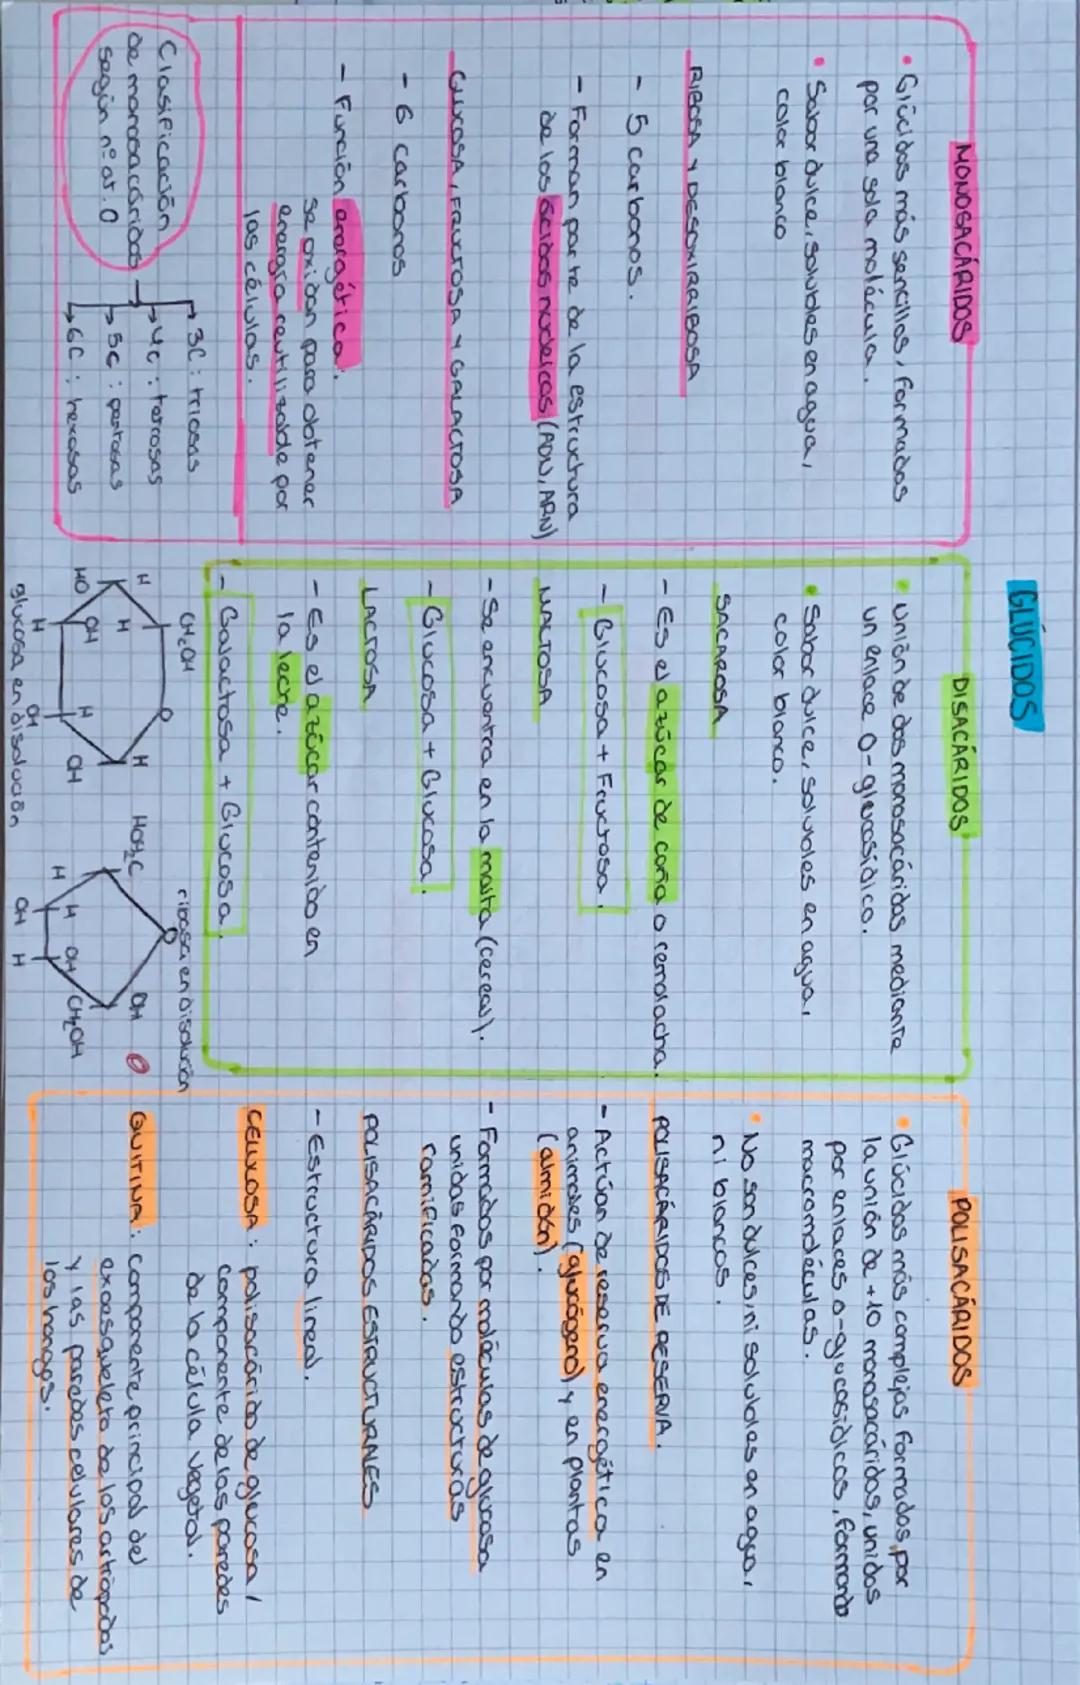 GLÚCIDOS
MONOSACÁRIDOS
• Glúcidos más sencillos, formados
por una sola molécula.
• Sabor dulce, solubles en agua,
color blanco
RIBOSA Y DESOXIRRIBOSA
- 5 carbonos.
- Forman parte de la estructura
de los ácidos nucleicos (ADN, ARN)
GLUCOSA, FRUCTOSA Y GALACTOSA
- 6 carbonos
- Función energética.
se oxidan para obtener
energía reutilizable por
las células.
Clasificación
de monosacáridos
según nº at. O
3C: triosas
4C: tetrosas
5C: pentosas
6C: hexosas
DISACÁRIDOS
• Unión de dos monosacáridos mediante
un enlace O-glucosídico.
• Sabor dulce, solubles en agua,
color blanco.
SACAROSA
- Es el azúcar de caña o remolacha.
- Glucosa + Fructosa.
MALTOSA
- Se encuentra en la malta (cereal).
- Glucosa + Glucosa.
LACTOSA
- Es el azúcar contenido en
la leche.
- Galactosa + Glucosa.
CH₂OH
O
H
H
H
OH
H
HO
OH
H
OH
glucosa en disolución
ribosa en disolución
O
HOH₂C
OH
H
H
OH
CH₂OH
OH
H
POLISACÁRIDOS
• Glúcidos más complejos formados por
la unión de +10 monosacáridos, unidos
por enlaces o-glucosídicos, formando
macromoléculas.
• No son dulces, ni solubles en agua,
ni blancos.
POLISACÁRIDOS DE RESERVA.
- Actúan de reserva energética en
animales (glucógeno) y en plantas
(almidón).
- Formados por moléculas de glucosa
unidas formando estructuras
ramificadas.
POLISACÁRIDOS ESTRUCTURALES
- Estructura lineal.
CELULOSA: polisacárido de glucosa,
componente de las paredes
de la célula vegetal.
QUITINA: componente principal del
exoesqueleto de los artrópodos
y las paredes celulares de
los hongos.